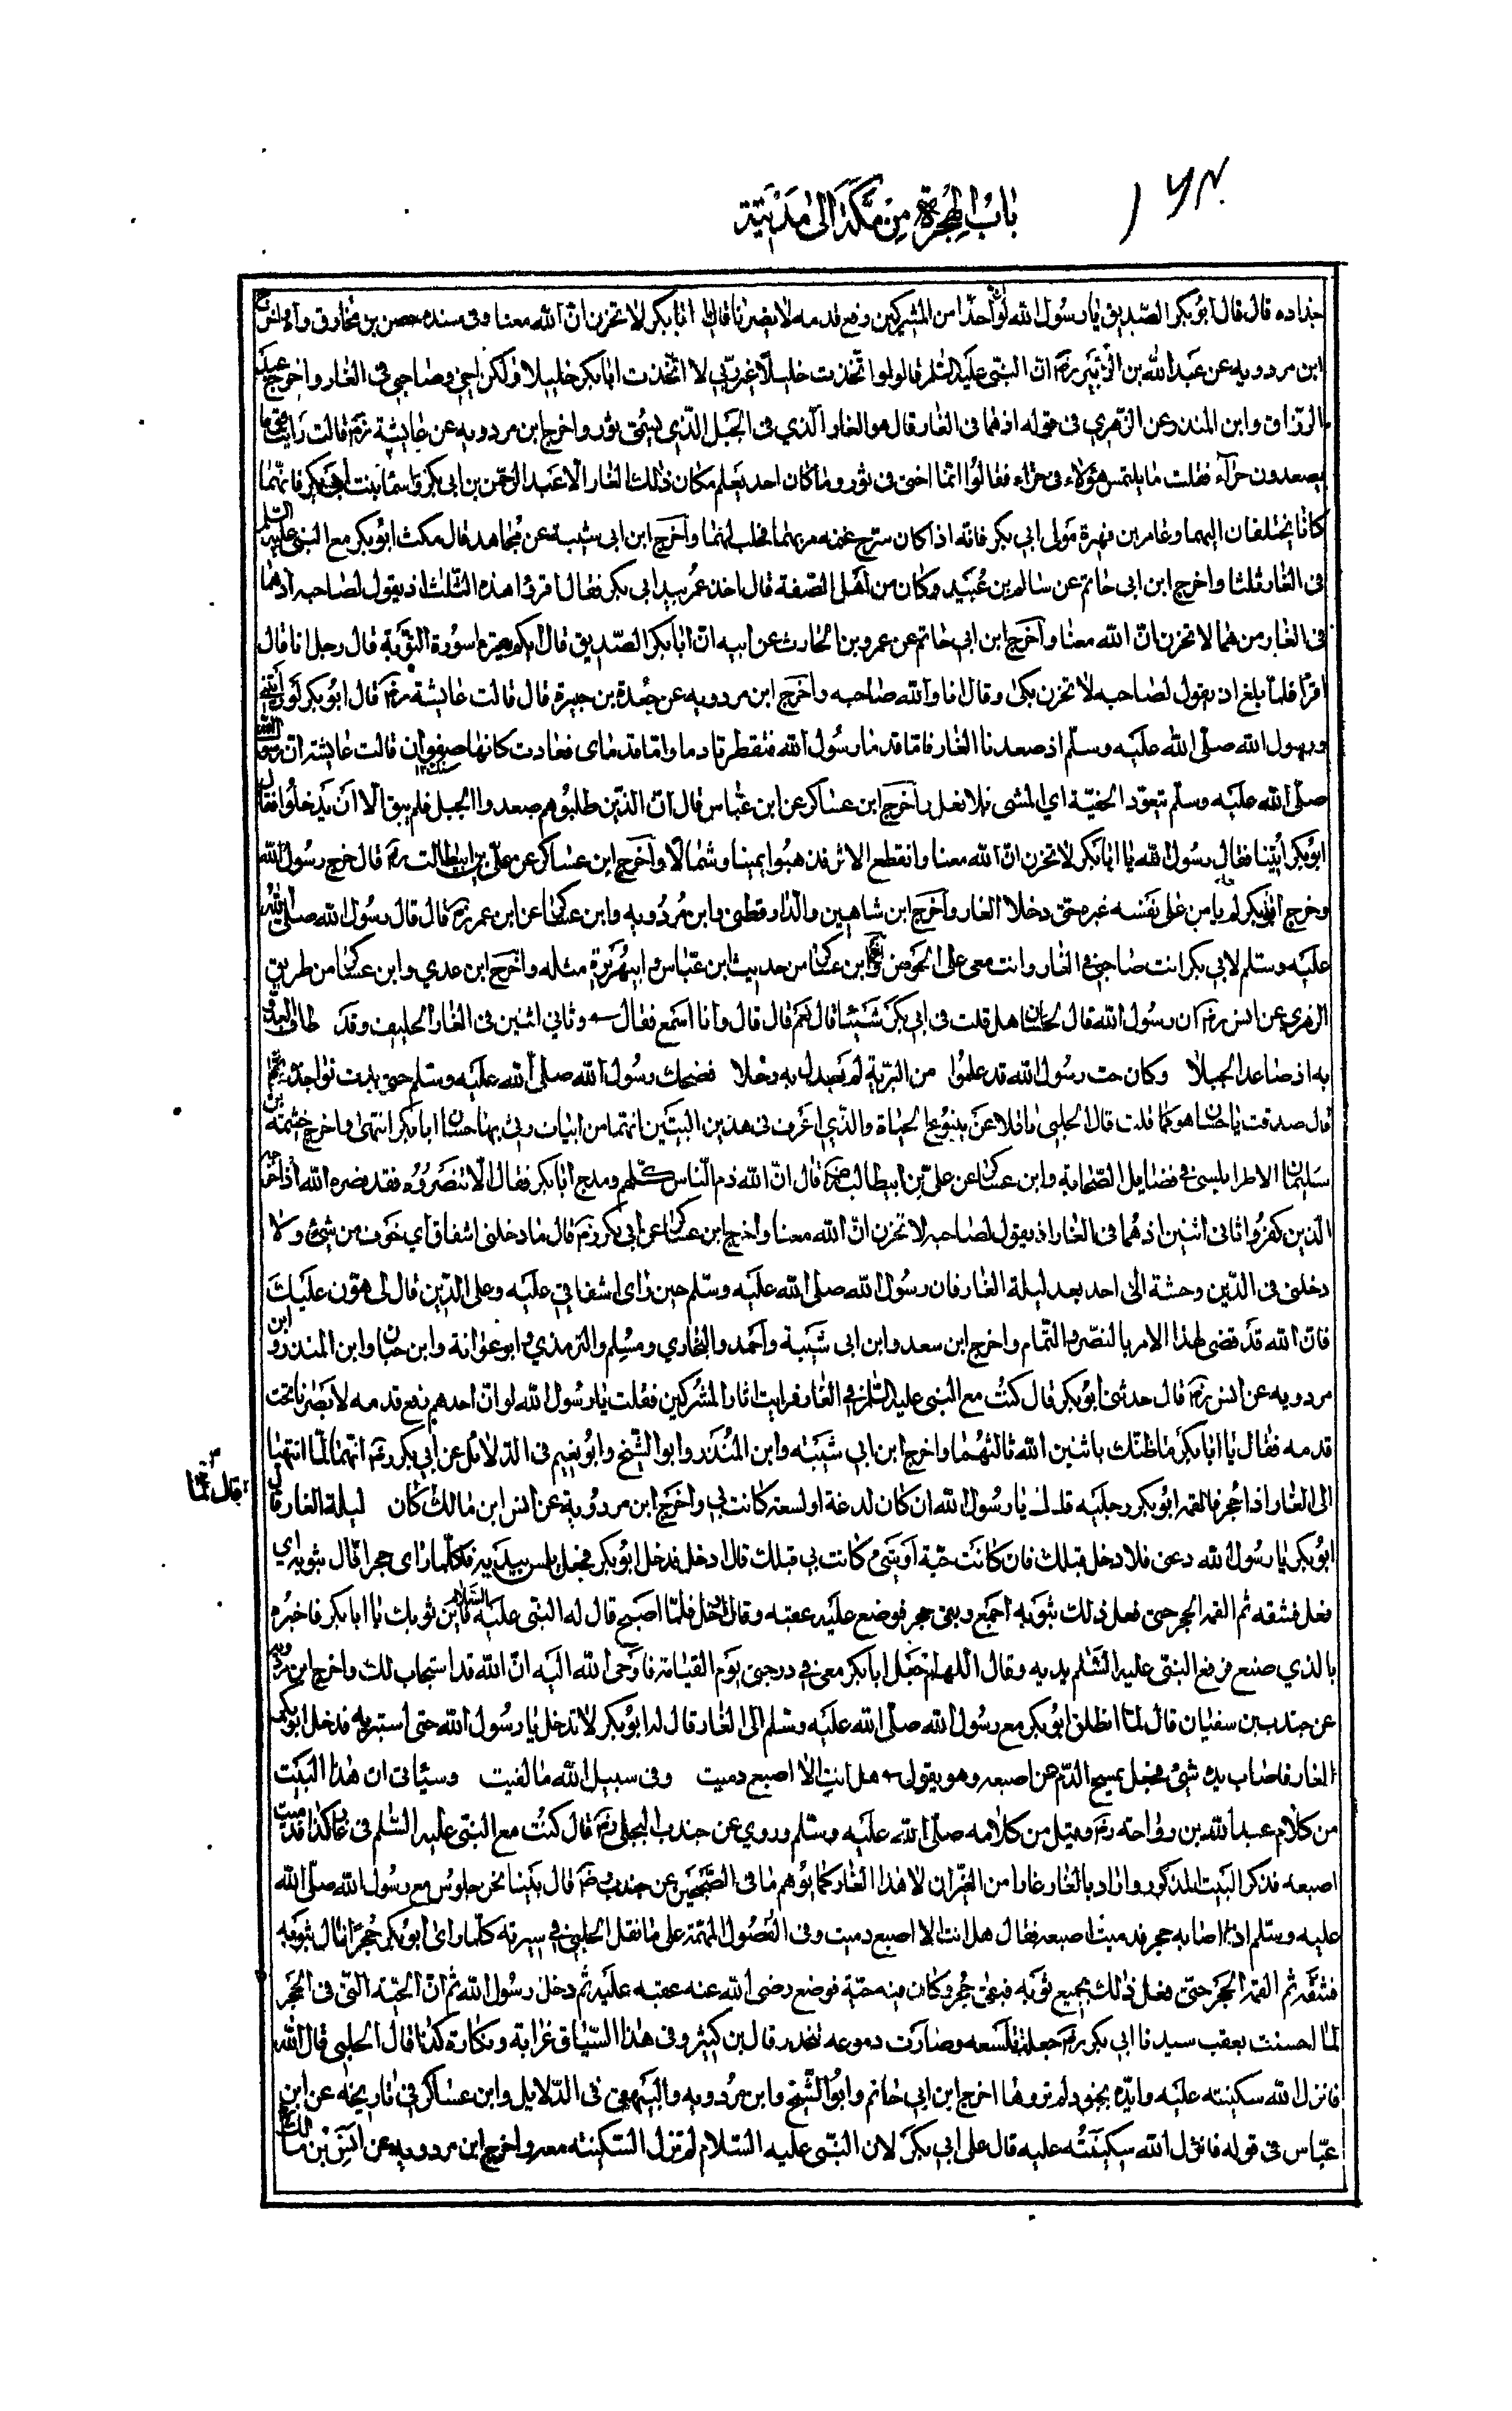 باب الهجرة من مكة الى مدينة
حذاده قال قال ابو بكر الصديق يا رسول الله لو ان احدا من المشركين رفع قدمه لابصرنا قال يا ابا بكر لا تحزن ان الله معنا وفى سنده حصن بن مخارق واخرج
ابن مردويه عن عبد الله بن الزبير رضه ان النبى عليه السلم قال ولو اتخذت خليلا غير ربي لا اتخذت ابا بكر خليلا ولكن اخي وصاحبي فى الغار واخرج عبد
الرزاق وابن المنذر عن الزهري فى قوله اذ هما فى الغار قال هو الغار الذي فى الجبل الذي يسمى ثور واخرج ابن مردويه عن عايشة رضه قالت رايت قوما
يصعدون حرآء فقلت ما يلتمس هؤلاء فى حراء فقالوا انما اختفى فى ثور وما كان احد يعلم مكان ذلك الغار الا عبد الرحمن بن ابى بكر واسما بنت ابى بكر فانهما
كانا يختلفان اليهما وعامر بن فهرة مولى ابي بكر فانه اذا كان سرح غنمه مر بهما فحلب لهما واخرج ابن ابى شيبة عن مجاهد قال مكث ابو بكر مع النبى عليه السلم
فى الغار ثلثا واخرج ابن ابى حاتم عن سالم بن عبيد وكان من اهل الصفة قال اخذ عمر بيد ابى بكر فقال من له هذه الثلث اذ يقول لصاحبه اذ هما
فى الغار من هما لا تحزن ان الله معنا واخرج ابن ابي حاتم عن عمرو بن الحارث عن ابيه ان ابا بكر الصديق قال ايكم يقرء سورة التوبة قال رجل انا قال
اقرا فلما بلغ اذ يقول لصاحبه لا تحزن بكى وقال انا والله صاحبه واخرج ابن مردويه عن جعدة بن هبيرة قال قالت عايشة رضه قال ابو بكر لو رايتنى
ورسول الله صلى الله عليه وسلم اذ صعدنا الغار فاما قدما رسول الله فتقطرتا دما واما قدماى فعادت كانها صفوان قالت عايشة ان رسول الله
صلى الله عليه وسلم لم يتعود الحفية اي المشى بلا نعل واخرج ابن عساكر عن ابن عباس قال ان الذين طلبوهم صعدوا الجبل فلم يبق الا ان يدخلوا فقال
ابو بكر اتينا فقال رسول الله يا ابا بكر لا تحزن ان الله معنا وانقطع الاثر فذهبوا يمينا وشمالا واخرج ابن عساكر عن على بن ابيطالب رضه قال خرج رسول الله
وخرج ابو بكر لم يامن على نفسه غيره حتى دخلا الغار واخرج ابن شاهين والدارقطنى وابن مردويه وابن عساكر عن ابن عمر رضه قال قال رسول الله صلى الله
عليه وسلم لابي بكر انت صاحبي فى الغار وانت معى على الحوض واخرج ابن عساكر من حديث ابن عباس وابيهريرة مثله واخرج ابن عدي وابن عساكر من طريق
الزهري عن انس رضه ان رسول الله قال لحسان هل قلت فى ابي بكر شيئا قال نعم قال قال وانا اسمع فقال وثاني اثنين فى الغار الحليف وقد طاف العدو
به اذ صاعد الجبلا وكان حب رسول الله قد علموا من البرية لم يعدل به رجلا فضحك رسول الله صلى الله عليه وسلم حتى بدت نواجذه ثم
قال صدقت يا حسان هو كما قلت قال الحلبى ناقلا عن ينبوع الحياة والذي اعرف فى هذين البيتين انهما من ابيات رثى بها حسان ابا بكر انتهى واخرج خيثمة بن
سليمان الاطرابلسى في فضايل الصحابة وابن عساكر عن علي بن ابيطالب رضه قال ان الله ذم الناس كلهم ومدح ابا بكر فقال الا تنصروه فقد نصره الله اذ اخرجه
الذين كفروا ثانى اثنين اذ هما فى الغار اذ يقول لصاحبه لا تحزن ان الله معنا واخرج ابن عساكر عن ابي بكر رضه قال ما دخلنى اشفاق اي خوف من شئ ولا
دخلنى فى الدين وحشة الى احد بعد ليلة الغار فان رسول الله صلى الله عليه وسلم حين راى اشفاقي عليه وعلى الدين قال لى هون عليك
فان الله قد قضى لهذا الامر بالنصر والتمام واخرج ابن سعد وابن ابى شيبة واحمد والبخاري ومسلم والترمذي وابو عوانة وابن حبان وابن المنذر وابن
مردويه عن انس رضه قال حدثنى ابو بكر قال كنت مع النبى عليه السلم في الغار فرايت اثار المشركين فقلت يا رسول الله لو ان احدهم رفع قدمه لابصرنا تحت
قدمه فقال يا ابا بكر ما ظنك باثنين الله ثالثهما واخرج ابن ابي شيبه وابن المنذر وابو الشيخ وابو نعيم فى الدلائل عن ابي بكر رضه انهما لما انتهيا
الى الغار اذا جحر فالقمه ابو بكر رجليه قال يا رسول الله ان كان لدغة او لسعة كانت بي واخرج ابن مردويه عن انس ابن مالك كان ليلة الغار قال
قال لما
ابو بكر يا رسول الله دعنى فلادخل قبلك فان كانت حية او شئ كانت بي قبلك قال ادخل فدخل ابو بكر فجعل يلمس بيديه فكلما راى جحرا قال بثوبه اي
فعل فشقه ثم القمه الحجر حتى فعل ذلك بثوبه اجمع وبقى جحر فوضع عليه عقبه وقال ادخل فلما اصبح قال له النبى عليه السلام فاين ثوبك يا ابا بكر فاخبره
بالذي صنع فرفع النبى عليه السلم يديه وقال اللهم اجعل ابا بكر معى في درجتى يوم القيامة فاوحى الله اليه ان الله قد استجاب لك واخرج ابن مردويه
عن جندب بن سفيان قال لما انطلق ابو بكر مع رسول الله صلى الله عليه وسلم الى الغار قال له ابو بكر لا تدخل يا رسول الله حتى استبريه فدخل ابو بكر
الغار فاصاب يده شئ فجعل يمسح الدم عن اصبعه وهو يقول هل انت الا اصبع دميت وفى سبيل الله ما لقيت وسياتى ان هذا البيت
من كلام عبد الله بن رواحة رضه وقيل من كلامه صلى الله عليه وسلم وروي عن جندب البجلى رضه قال كنت مع النبى عليه السلم فى غار فدميت
اصبعه فذكر البيت المذكور واراد بالغار غارا من الغيران لا هذا الغار كما يوهم ما فى الصحيحين عن جندب رضه قال بينا نحن جلوس مع رسول الله صلى الله
عليه وسلم اذ اصابه حجر فدميت اصبعه فقال هل انت الا اصبع دميت وفى الفصول المهمة على ما نقل الحلبي في سيرته كلما راى ابو بكر جحرا قال بثوبه
فشقه ثم القمه الحجر حتى فعل ذلك بجميع ثوبه فبقى جحر وكان فيه حية فوضع رضى الله عنه عقبه عليه ثم دخل رسول الله ثم ان الحية التى فى الجحر
لما احست بعقب سيدنا ابي بكر رضه جعلت تلسعه وصارت دموعه تنحدر قال بن كثير وفى هذا السياق غرابة ونكارة كذا قال الحلبى قال الله
فانزل الله سكينته عليه وايده بجنود لم تروها اخرج ابن ابي حاتم وابو الشيخ وابن مردويه والبيهقى فى الدلايل وابن عساكر في تاريخه عن ابن
عباس فى قوله فانزل الله سكينته عليه قال على ابي بكر لان النبى عليه السلام لم تزل السكينته معه واخرج ابن مردويه عن انس بن مالك